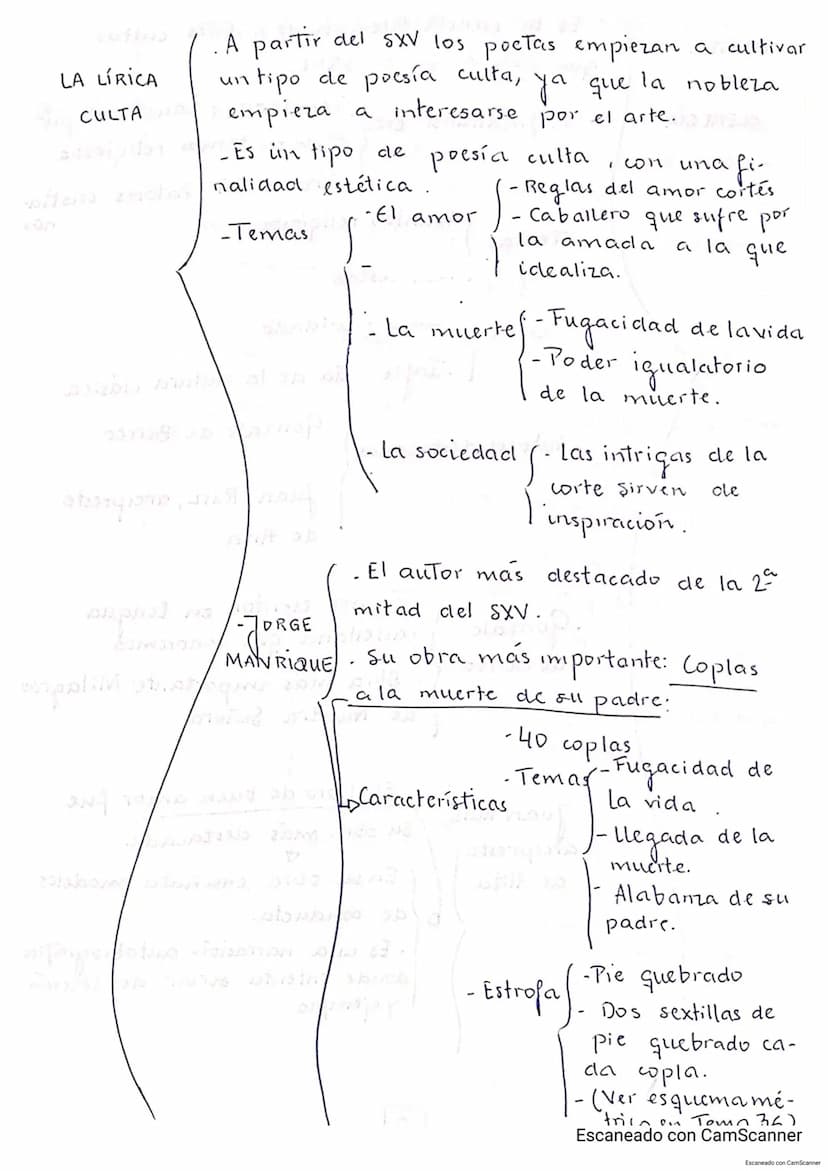 LA LÍRICA
CULTA
. A partir del SXV los poetas empiezan a cultivar
un tipo de poesía culta, ya que la nobleza
empieza a interesarse por el arte.
- Es un tipo de poesía culta, con una fi-
nalidad estética.
- Temas
- El amor
- Reglas del amor cortés
- Caballero que sufre por
la amada a la que
idealiza.
- La muerte
- Fugacidad de la vida
- Poder igualatorio
de la muerte.
- La sociedad
- Las intrigas de la
corte sirven de
inspiración.
- JORGE
MANRIQUE
. El autor más destacado de la 2ª
mitad del SXV.
. Su obra más importante: Coplas
a la muerte de su padre:
- 40 coplas
Características
- Temas
- Fugacidad de
la vida.
- Llegada de la
muerte.
- Alabanza de su
padre.
- Estrofa
- Pie quebrado
- Dos sextillas de
pie quebrado ca-
da copla.
- (Ver esquema mé-
trico en Tema 36)
Escaneado con CamScanner
Escaneado con CamScanner